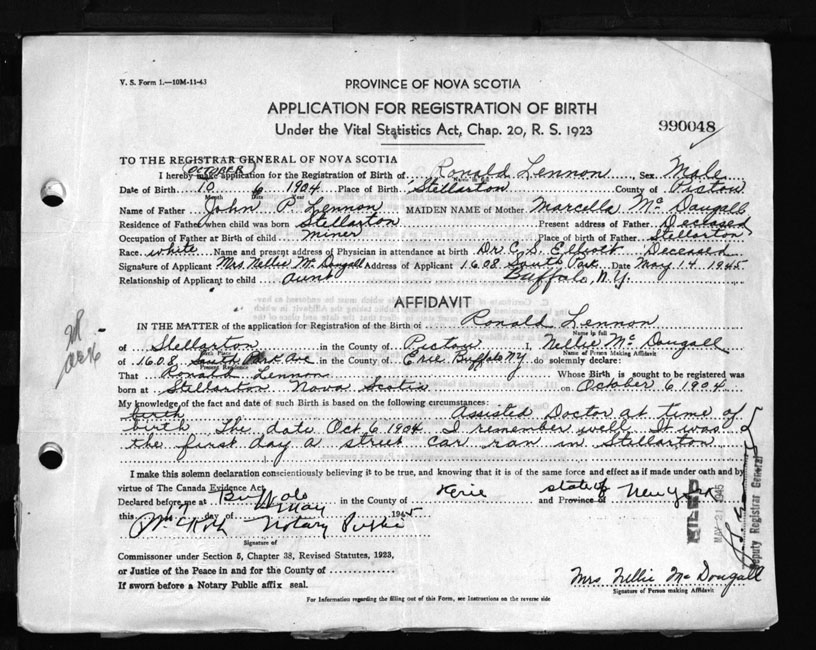 V. S. Form 1.—10M-11-43
PROVINCE OF NOVA SCOTIA
APPLICATION FOR REGISTRATION OF BIRTH
Under the Vital Statistics Act, Chap. 20, R. S. 1923
990048
TO THE REGISTRAR GENERAL OF NOVA SCOTIA
OCTOBER
I hereby make application for the Registration of Birth of Ronald Lennon Sex Male
Date of Birth 10 6 1904 Place of Birth Stellarton County of Pictou
Month Date Year
Name of Father John P. Lennon MAIDEN NAME of Mother Marcella McDougall
Residence of Father when child was born Stellarton Present address of Father Deceased
Occupation of Father at Birth of child miner Place of birth of Father Stellarton
Race white Name and present address of Physician in attendance at birth Dr C. S. Deceased
Signature of Applicant Mrs Nellie McDougall Address of Applicant 1608 South Park Date May 14 1945
Relationship of Applicant to child aunt Buffalo, N.Y.
AFFIDAVIT
IN THE MATTER of the application for Registration of the Birth of Ronald Lennon
Name in full
of Stellarton in the County of Pictou I, Nellie McDougall
Birth Place Name of Person Making Affidavit
of 1608 South Park Ave in the County of Erie Buffalo NY do solemnly declare:
Present Residence
That Ronald Lennon Whose Birth is sought to be registered was
born at Stellarton Nova Scotia on October 6 1904
My knowledge of the fact and date of such Birth is based on the following circumstances:
birth Assisted Doctor at time of
birth The date Oct 6 1904 I remember well. It was
the first day a street car ran in Stellarton
I make this solemn declaration conscientiously believing it to be true, and knowing that it is of the same force and effect as if made under oath and by
virtue of The Canada Evidence Act.
Declared before me at Buffalo in the County of Erie and Province of state of New York
this day of May 1945
Notary Public
Signature of
Commissioner under Section 5, Chapter 38, Revised Statutes, 1923,
or Justice of the Peace in and for the County of
If sworn before a Notary Public affix seal.
Mrs Nellie McDougall
Signature of Person making Affidavit
For Information regarding the filling out of this Form, see Instructions on the reverse side
FILED
MAY 31 1945
Deputy Registrar General